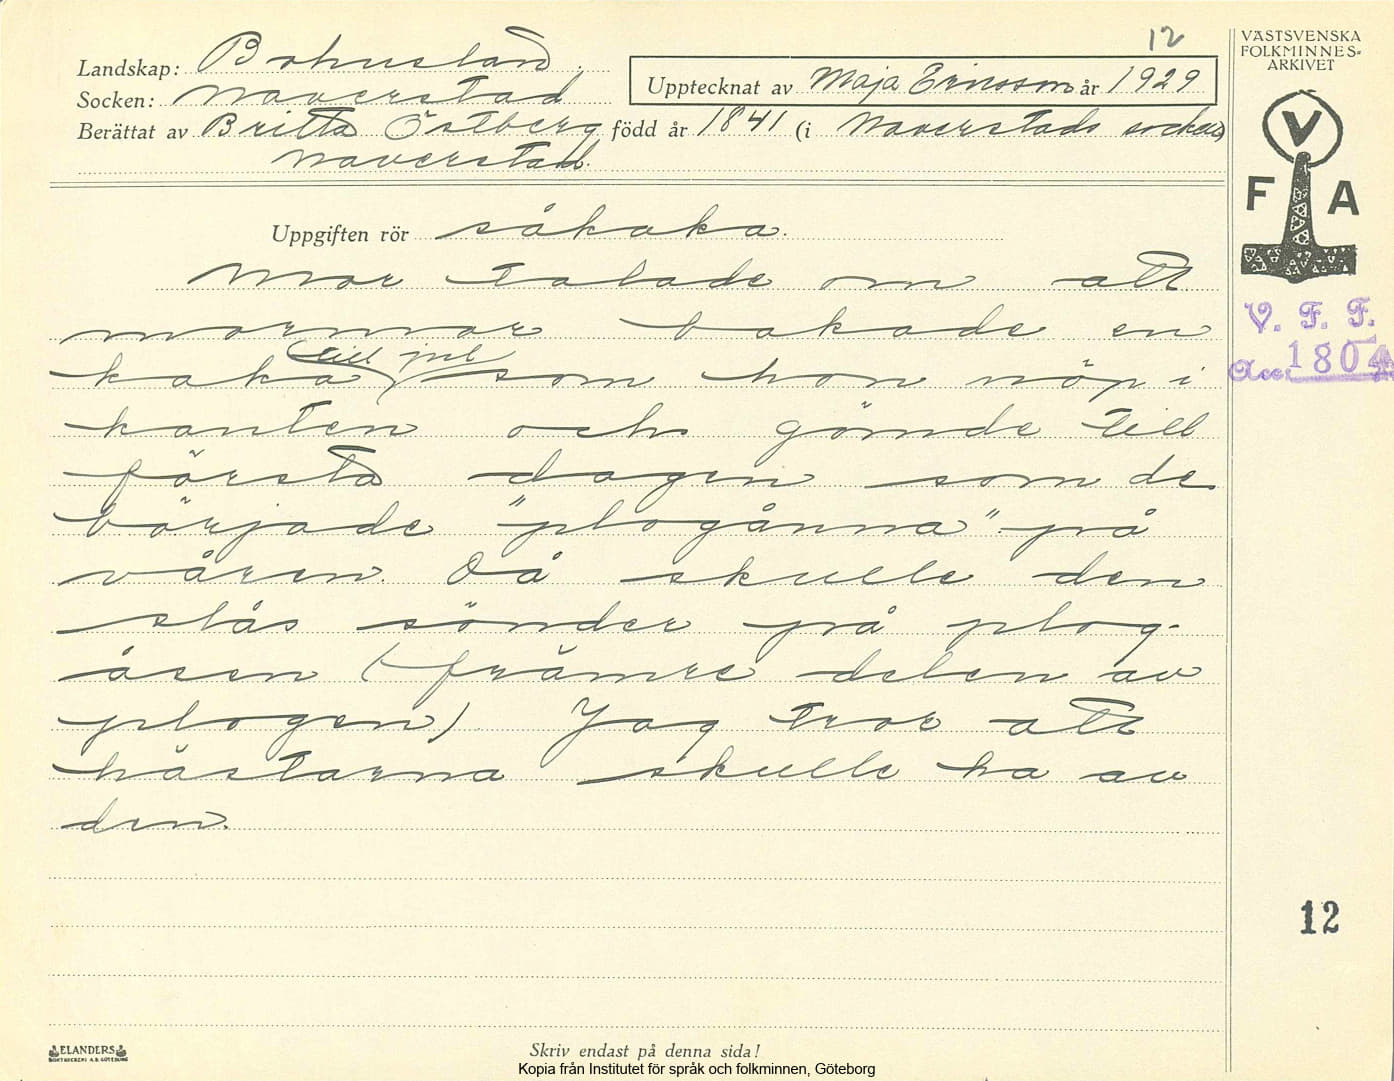 12
VÄSTSVENSKA
FOLKMINNES=
ARKIVET
Landskap: Bohuslän.
Socken: Naverstad
Upptecknat av Maja Ericsson år 1929
Berättat av Britta Östberg född år 1841 (i Naverstads socken)
Naverstad.
V
F A
Uppgiften rör såkaka.
Mor talade om att
mormor bakade en
till jul
kaka som hon nöp i
kanten och gömde till
första dagen som de
började "plogånna" på
våren. Då skulle den
slås sönder på plog-
åsen (främre delen av
plogen). Jag tror att
hästarna skulle ha av
den.
V. F. F.
Acc. 1804
12
ELANDERS
BOKTRYCKERI A.B. GÖTEBORG
Skriv endast på denna sida!
Kopia från Institutet för språk och folkminnen, Göteborg